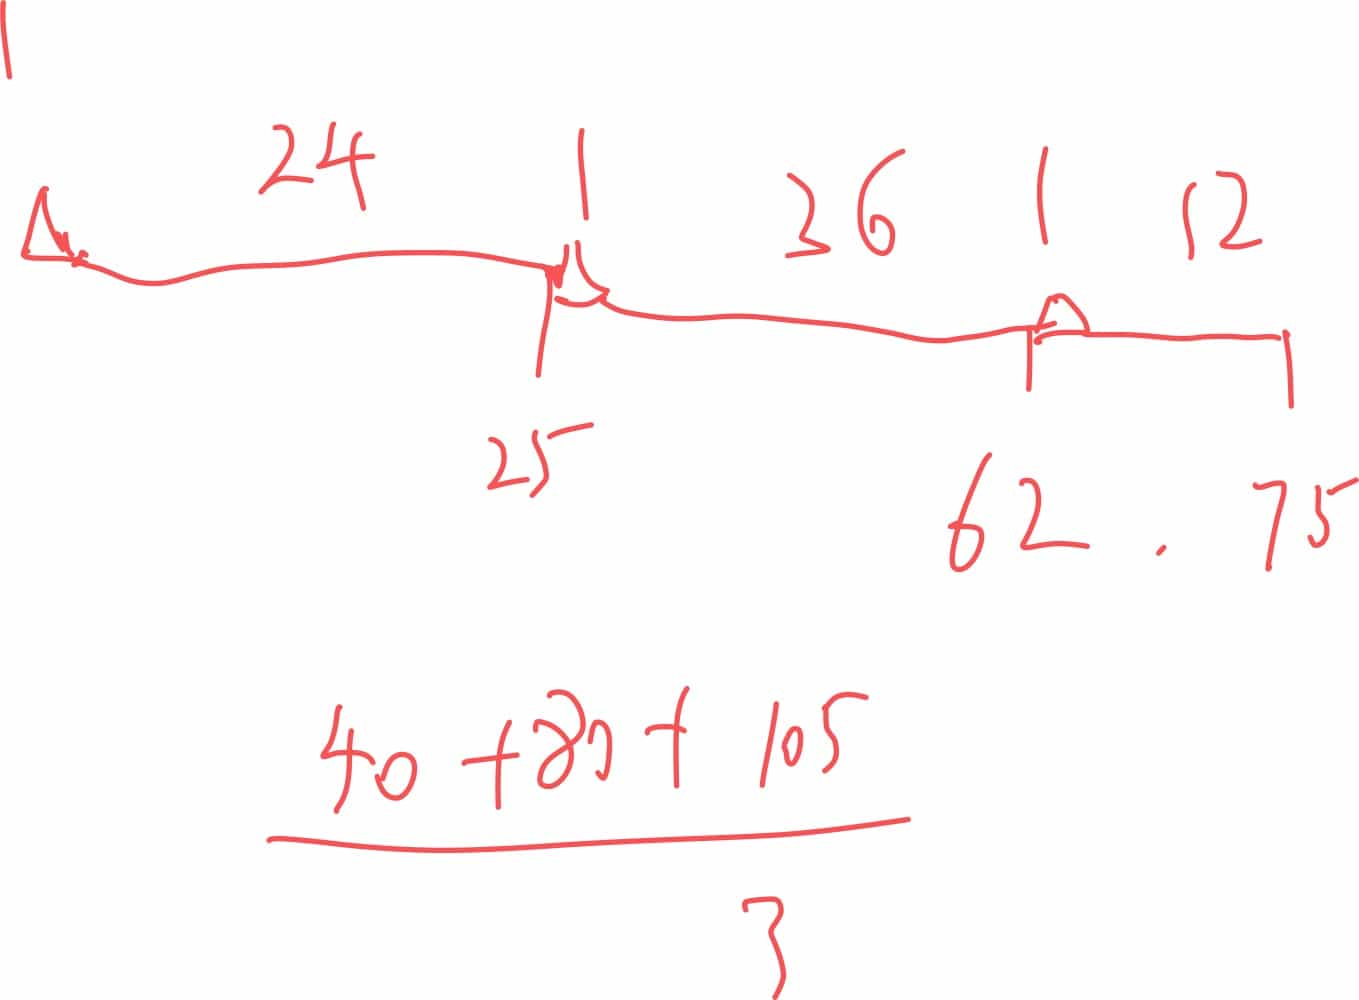 1
24 1 36 1 12
25
62 . 75
40 + 80 + 105
3